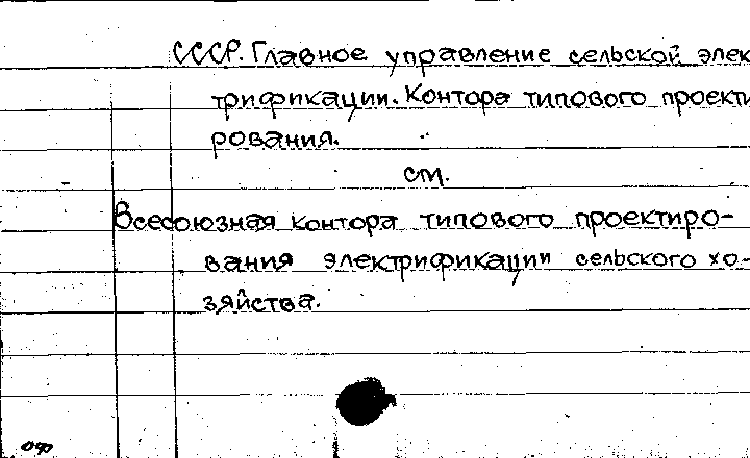 СССР. Главное управление сельской элек
трификации. Контора типового проекти
рования.
см.
Всесоюзная контора типового проектиро-
вания электрификации сельского хо-
зяйства.
оф